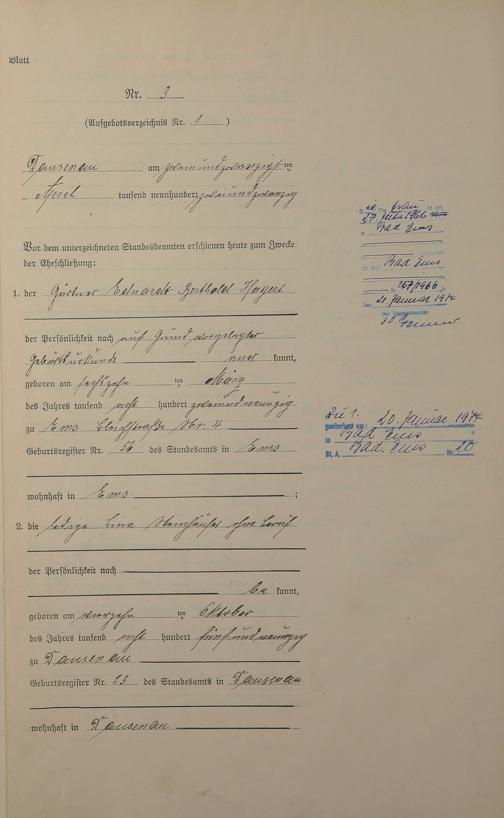 Blatt
Nr. 3
(Aufgebotsverzeichnis Nr. 1 )
Dausenau am zweiundzwanzigsten
April tausend neunhundert zweiundzwanzig
Vor dem unterzeichneten Standesbeamten erschienen heute zum Zwecke
der Eheschließung:
1. der Gärtner Eduardt Berthold
der Persönlichkeit nach auf Grund vorgelegter
Geburtsurkunde aner kannt,
geboren am sechszehn ten März
des Jahres tausend acht hundert zweiundneunzig
zu Ems Nr. 4
Geburtsregister Nr. 36 des Standesamts in Ems
wohnhaft in Ems ;
2. die ledige Lina Steinhäuser ohne Beruf
der Persönlichkeit nach
be kannt,
geboren am vierzehn ten Oktober
des Jahres tausend acht hundert fünfundneunzig
zu Dausenau
Geburtsregister Nr. 23 des Standesamts in Dausenau
wohnhaft in Dausenau
Frau
27. Juli 1966
Bad Ems
Bad Ems
Nr. 157/1966
Januar 1974
Zu 1.
gestorben am: 20. Januar 1974
in Bad Ems
St. A. Bad Ems Nr. 20